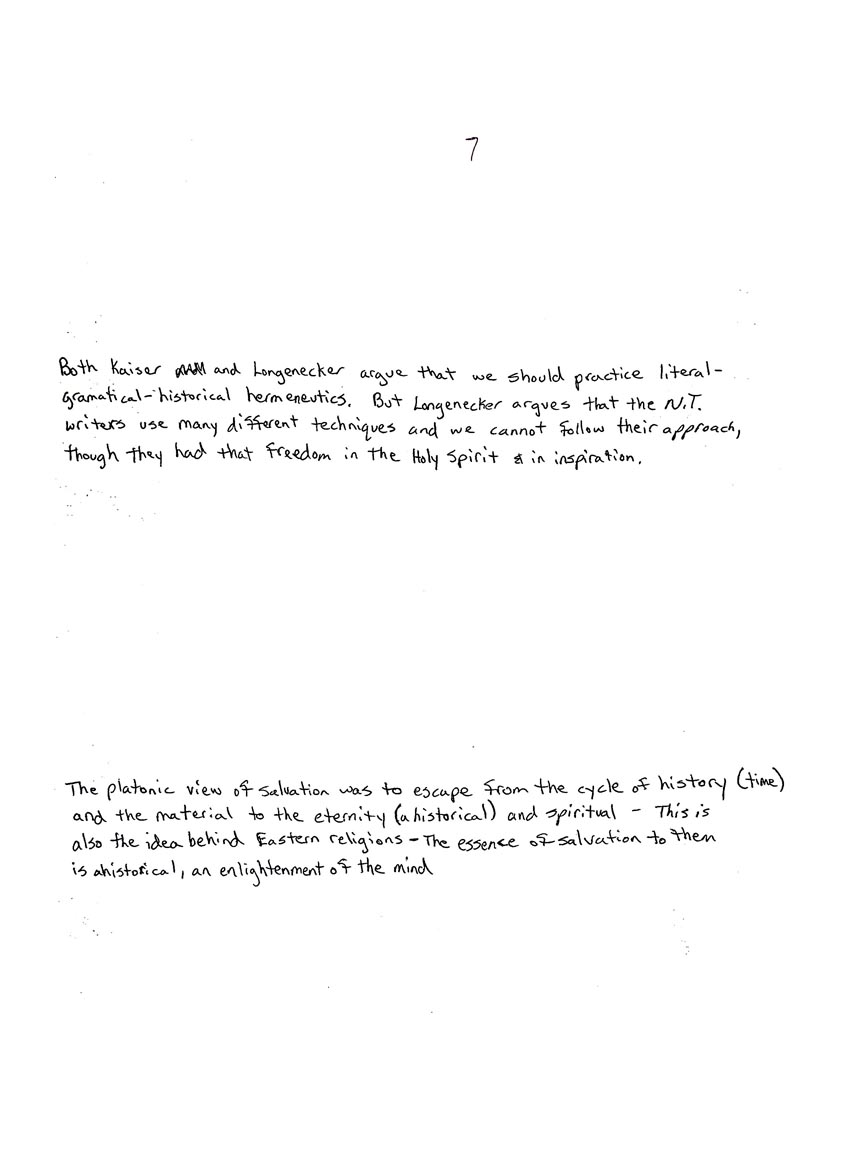 7
Both Kaiser and Longenecker argue that we should practice literal-
gramatical-historical hermeneutics. But Longenecker argues that the N.T.
writers use many different techniques and we cannot follow their approach,
though they had that freedom in the Holy Spirit & in inspiration.
The platonic view of salvation was to escape from the cycle of history (time)
and the material to the eternity (ahistorical) and spiritual - This is
also the idea behind Eastern religions - The essence of salvation to them
is ahistorical, an enlightenment of the mind